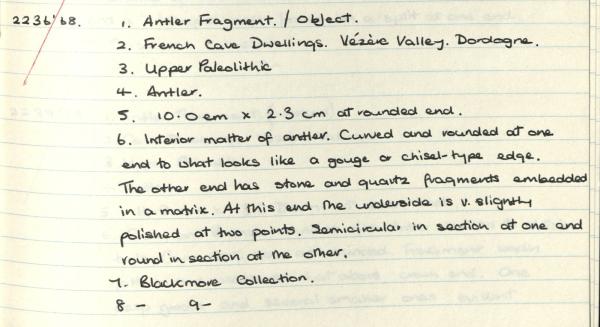 2236/68. 1. Antler Fragment. / Object.
2. French Cave Dwellings. Vézère Valley. Dordogne.
3. Upper Paleolithic
4. Antler.
5. 10.0 cm x 2.3 cm at rounded end.
6. Interior matter of antler. Curved and rounded at one
end to what looks like a gouge or chisel-type edge.
The other end has stone and quartz fragments embedded
in a matrix. At this end the underside is v. slightly
polished at two points. Semicircular in section at one and
round in section at the other.
7. Blackmore Collection.
8 - 9 -